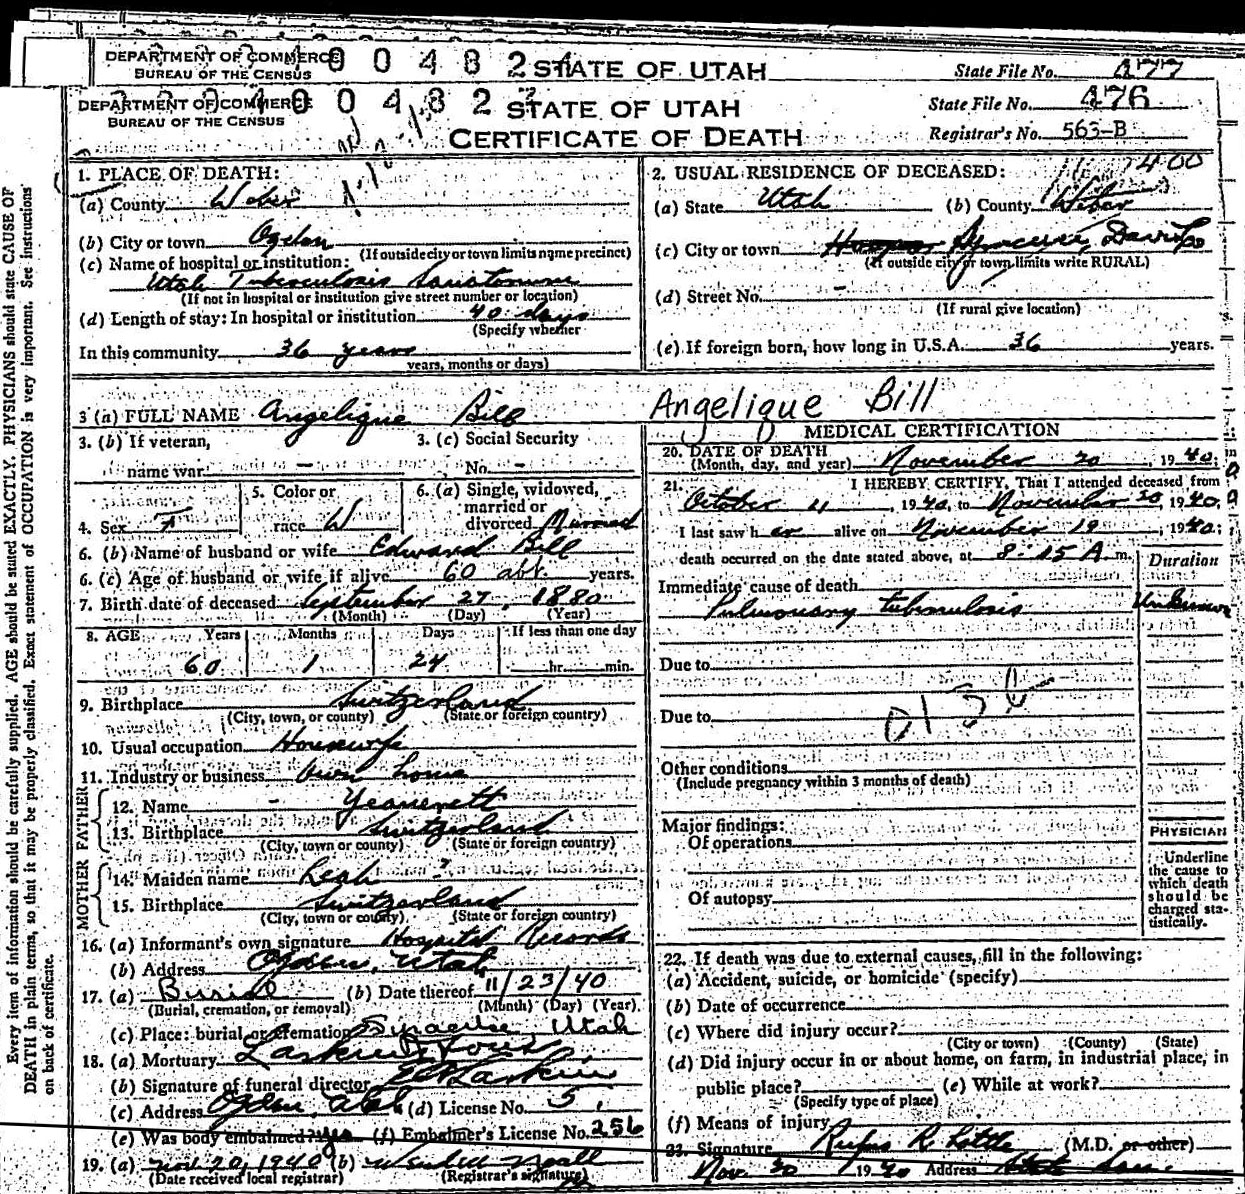 DEPARTMENT OF COMMERCE
BUREAU OF THE CENSUS
STATE OF UTAH
State File No. 477
DEPARTMENT OF COMMERCE
BUREAU OF THE CENSUS
STATE OF UTAH
CERTIFICATE OF DEATH
State File No. 476
Registrar's No. 563-B
Every item of information should be carefully supplied. AGE should be stated EXACTLY. PHYSICIANS should state CAUSE OF
DEATH in plain terms, so that it may be properly classified. Exact statement of OCCUPATION is very important. See instructions
on back of certificate.
1. PLACE OF DEATH:
(a) County Weber
(b) City or town Ogden
(If outside city or town limits name precinct)
(c) Name of hospital or institution:
Utah Tuberculosis Sanatorium
(If not in hospital or institution give street number or location)
(d) Length of stay: In hospital or institution 40 days
(Specify whether
In this community 36 years
years, months or days)
2. USUAL RESIDENCE OF DECEASED:
(a) State Utah (b) County Weber
(c) City or town Hooper Syracuse, Davis Co
(If outside city or town limits write RURAL)
(d) Street No. -
(If rural give location)
(e) If foreign born, how long in U.S.A. 36 years.
3 (a) FULL NAME Angelique Bill Angelique Bill
3. (b) If veteran,
name war -
3. (c) Social Security
No. -
4. Sex F
5. Color or
race W
6. (a) Single, widowed,
married or
divorced Married
6. (b) Name of husband or wife Edward Bill
6. (c) Age of husband or wife if alive 60 abt. years.
7. Birth date of deceased September 27, 1880
(Month) (Day) (Year)
8. AGE Years Months Days If less than one day
60 1 24 hr. min.
9. Birthplace Switzerland
(City, town, or county) (State or foreign country)
10. Usual occupation Housewife
11. Industry or business Own home
FATHER
12. Name - Jeanerett
13. Birthplace Switzerland
(City, town or county) (State or foreign country)
MOTHER
14. Maiden name Leah ?
15. Birthplace Switzerland
(City, town or county) (State or foreign country)
16. (a) Informant's own signature Hospital Records
(b) Address Ogden, Utah
17. (a) Burial (b) Date thereof 11/23/40
(Burial, cremation, or removal) (Month) (Day) (Year)
(c) Place: burial or cremation Syracuse, Utah
18. (a) Mortuary Larkin & Sons
(b) Signature of funeral director Larkin
(c) Address Ogden, Utah (d) License No. 5
(e) Was body embalmed? Yes (f) Embalmer's License No. 256
19. (a) Nov 20, 1940 (b)
(Date received local registrar) (Registrar's signature)
MEDICAL CERTIFICATION
20. DATE OF DEATH
(Month, day, and year) November 20, 1940;
21. I HEREBY CERTIFY, That I attended deceased from
October 11, 1940, to November 20, 1940;
I last saw her alive on November 19, 1940;
death occurred on the date stated above, at 8:15 A m.
Duration
Immediate cause of death
Pulmonary tuberculosis Unknown
Due to
Due to
Other conditions
(Include pregnancy within 3 months of death)
Major findings:
Of operations
Of autopsy
PHYSICIAN
Underline
the cause to
which death
should be
charged sta-
tistically.
22. If death was due to external causes, fill in the following:
(a) Accident, suicide, or homicide (specify)
(b) Date of occurrence
(c) Where did injury occur?
(City or town) (County) (State)
(d) Did injury occur in or about home, on farm, in industrial place, in
public place? (e) While at work?
(Specify type of place)
(f) Means of injury
23. Signature Rufus R. Little (M.D. or other)
Nov. 20 1940 Address